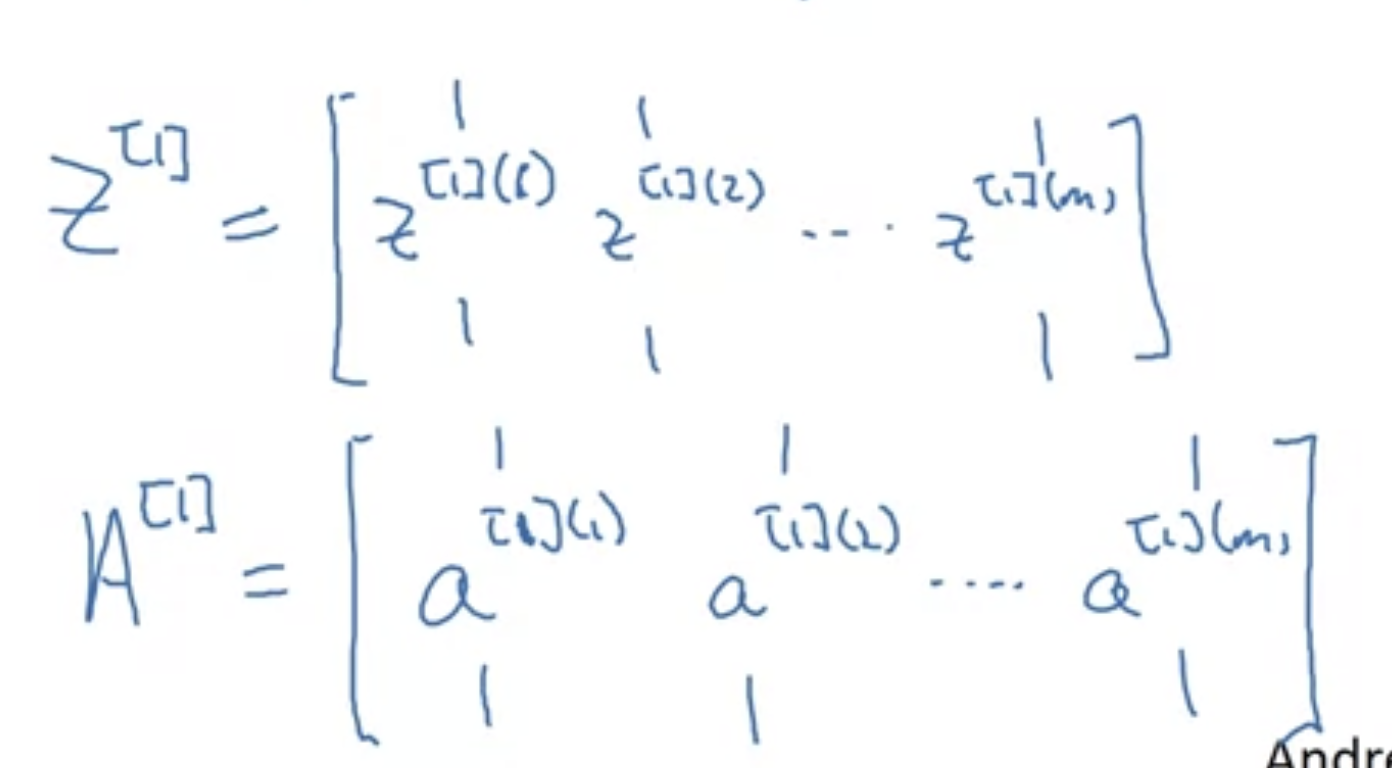 Z^[1] = [ z^[1](1) z^[1](2) ... z^[1](m) ]
A^[1] = [ a^[1](1) a^[1](2) .... a^[1](m) ]
Andre